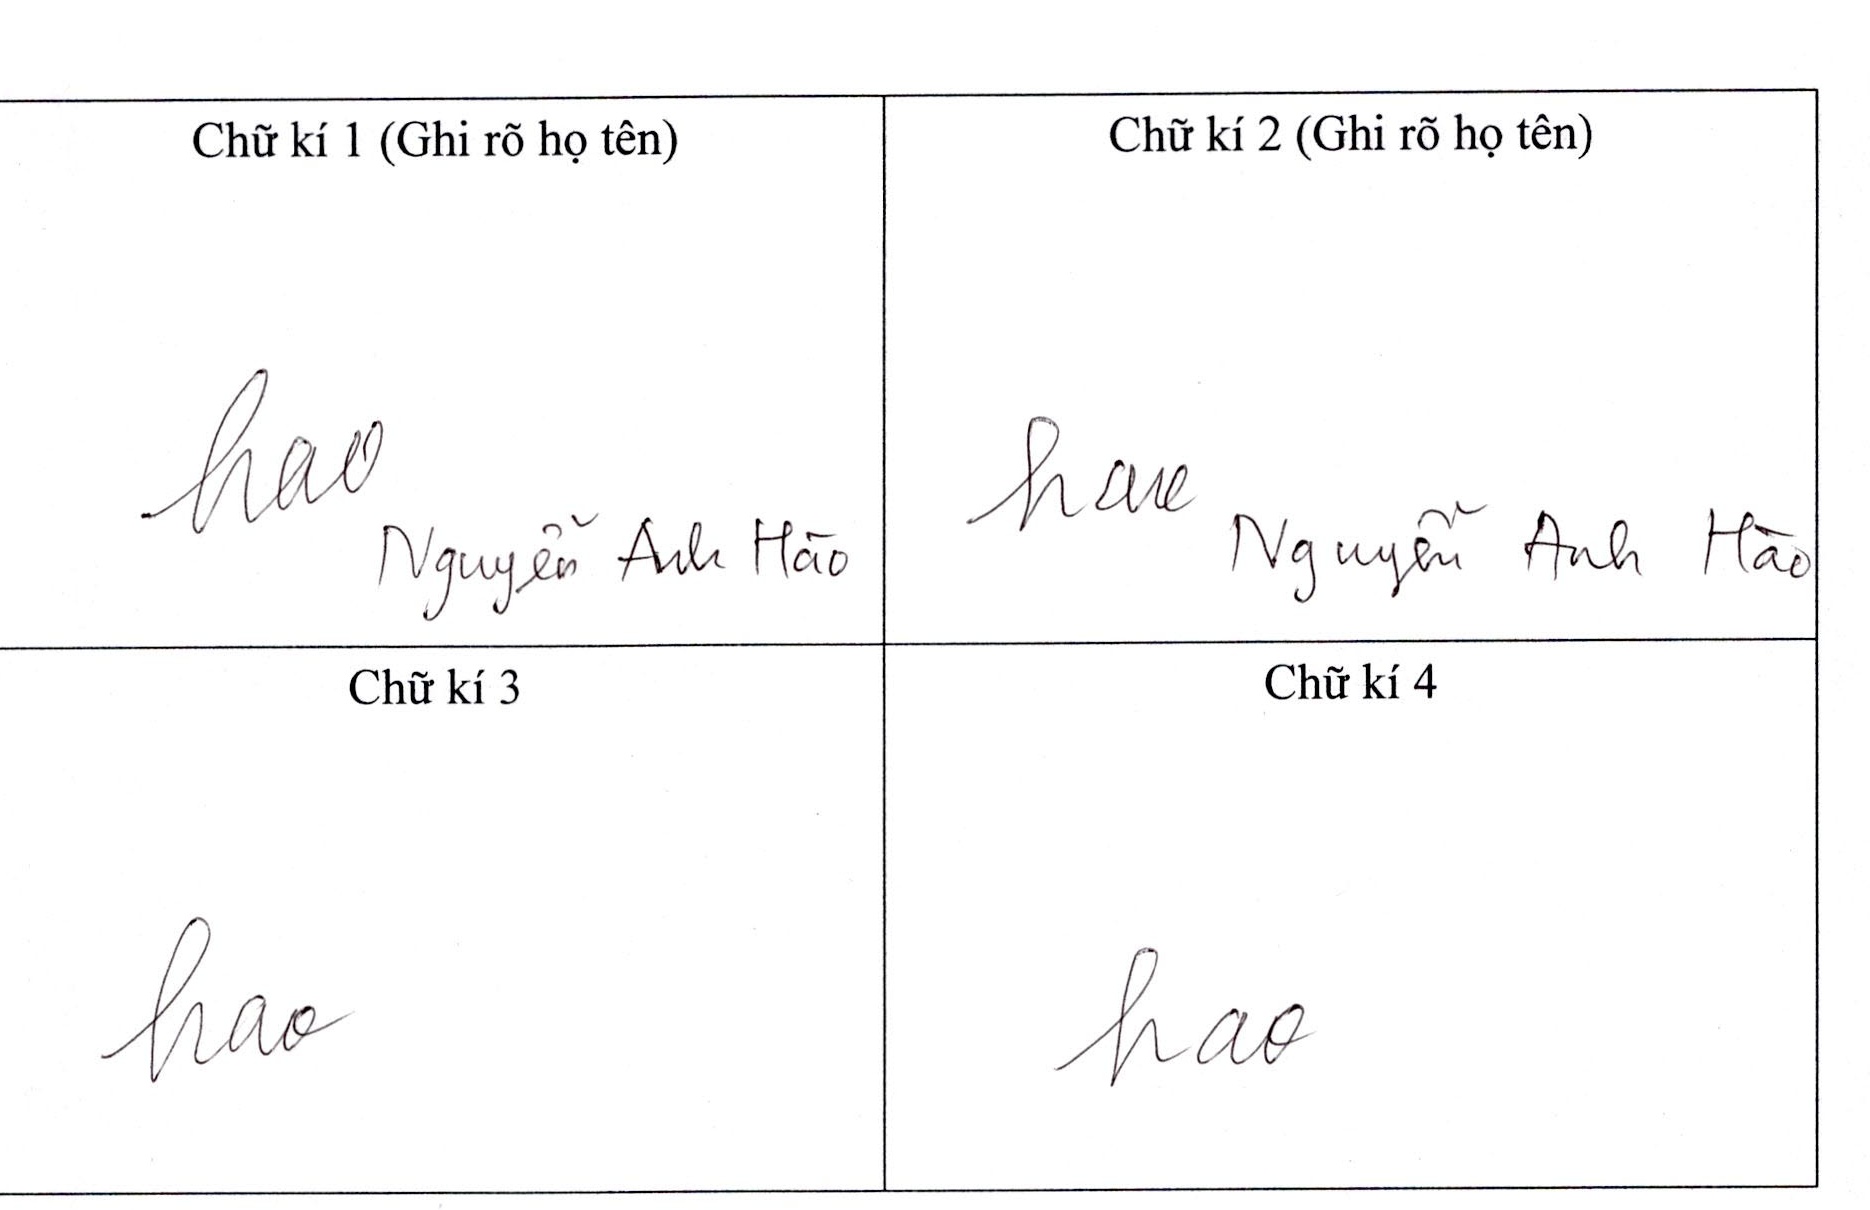 Chữ kí 1 (Ghi rõ họ tên)
Chữ kí 2 (Ghi rõ họ tên)
hao
Nguyễn Anh Hào
hao
Nguyễn Anh Hào
Chữ kí 3
Chữ kí 4
hao
hao